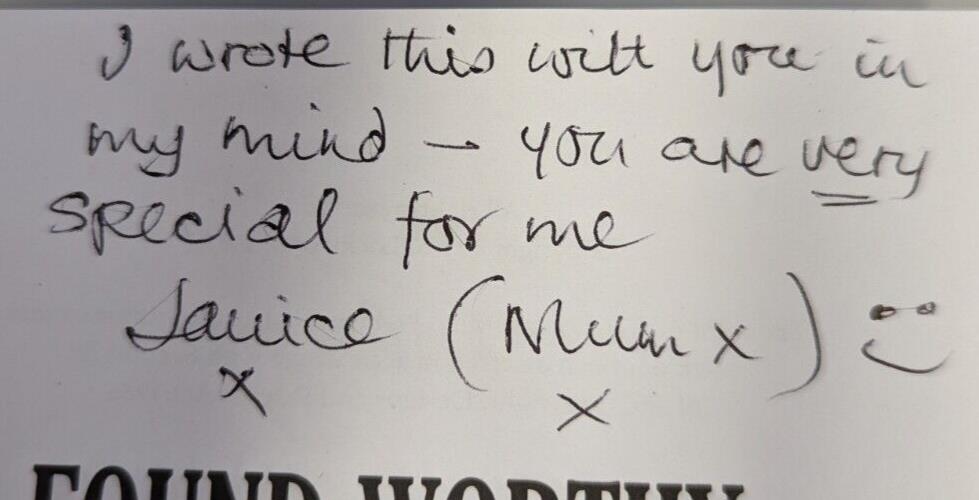 I wrote this with you in
my mind - you are very
special for me
Janice (Mum x) :)
x x
FOUND WORTHY